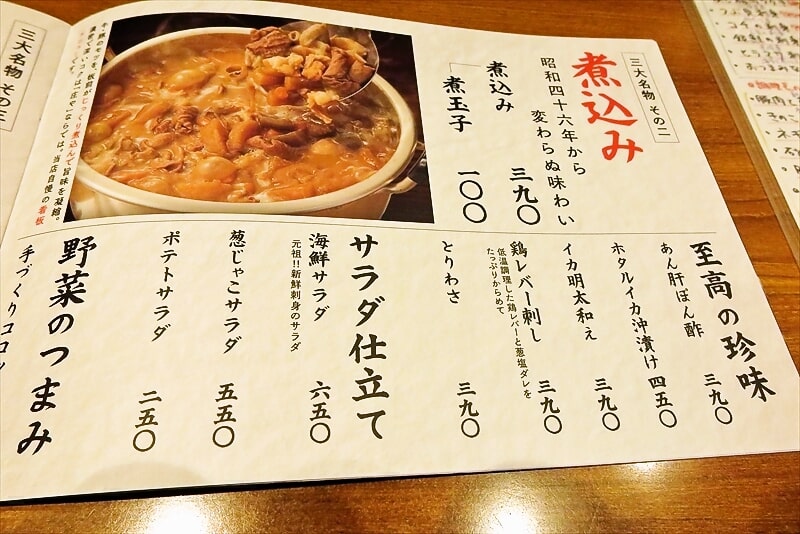 三大名物 その二
煮込み
昭和四十六年から
変わらぬ味わい
煮込み 三九〇
煮玉子 一〇〇
旨味を凝縮。
当店自慢の看板
至高の珍味
あん肝ぽん酢 三九〇
ホタルイカ沖漬け 四五〇
イカ明太和え 三九〇
鶏レバー刺し 三九〇
低温調理した鶏レバーと葱塩ダレを
たっぷりからめて
とりわさ 三九〇
サラダ仕立て
海鮮サラダ 六五〇
元祖!!新鮮刺身のサラダ
葱じゃこサラダ 五五〇
ポテトサラダ 二五〇
野菜のつまみ
手づくりコロッ
三大名物 その三